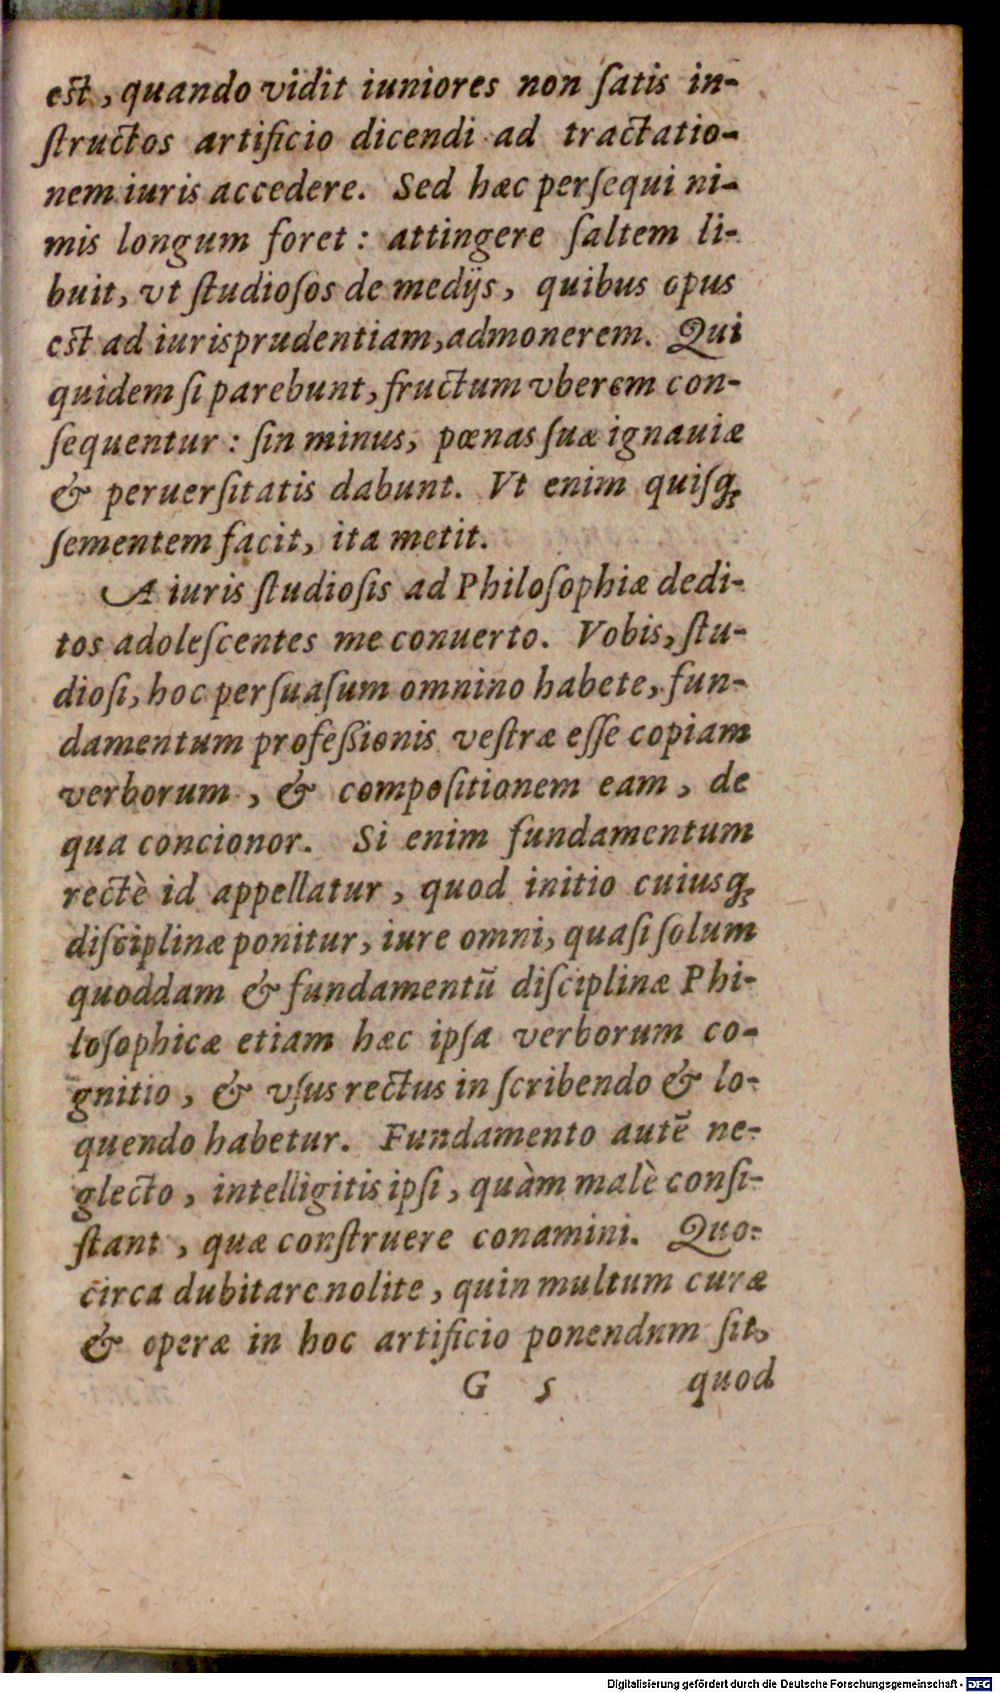 est, quando vidit iuniores non ſatis in-
ſtructos artificio dicendi ad tractatio-
nem iuris accedere. Sed hæc perſequi ni-
mis longum foret: attingere ſaltem li-
buit, vt ſtudioſos de medijs, quibus opus
est ad iurisprudentiam, admonerem. Qui
quidem ſi parebunt, fructum vberem con-
ſequentur: ſin minus, pœnas ſuæ ignauiæ
& peruerſitatis dabunt. Vt enim quiſq;
ſementem facit, ita metit.
A iuris ſtudioſis ad Philoſophiæ dedi-
tos adoleſcentes me conuerto. Vobis, ſtu-
dioſi, hoc perſuaſum omnino habete, fun-
damentum profeßionis veſtræ eſſe copiam
verborum, & compoſitionem eam, de
qua concionor. Si enim fundamentum
rectè id appellatur, quod initio cuiusq;
diſciplinæ ponitur, iure omni, quaſi ſolum
quoddam & fundamentū diſciplinæ Phi-
loſophicæ etiam hæc ipſa verborum co-
gnitio, & vſus rectus in ſcribendo & lo-
quendo habetur. Fundamento autē ne-
glecto, intelligitis ipſi, quàm malè conſi-
ſtant, quæ conſtruere conamini. Quo-
circa dubitare nolite, quin multum curæ
& operæ in hoc artificio ponendum ſit,
G 5 quod
Digitalisierung gefördert durch die Deutsche Forschungsgemeinschaft - DFG